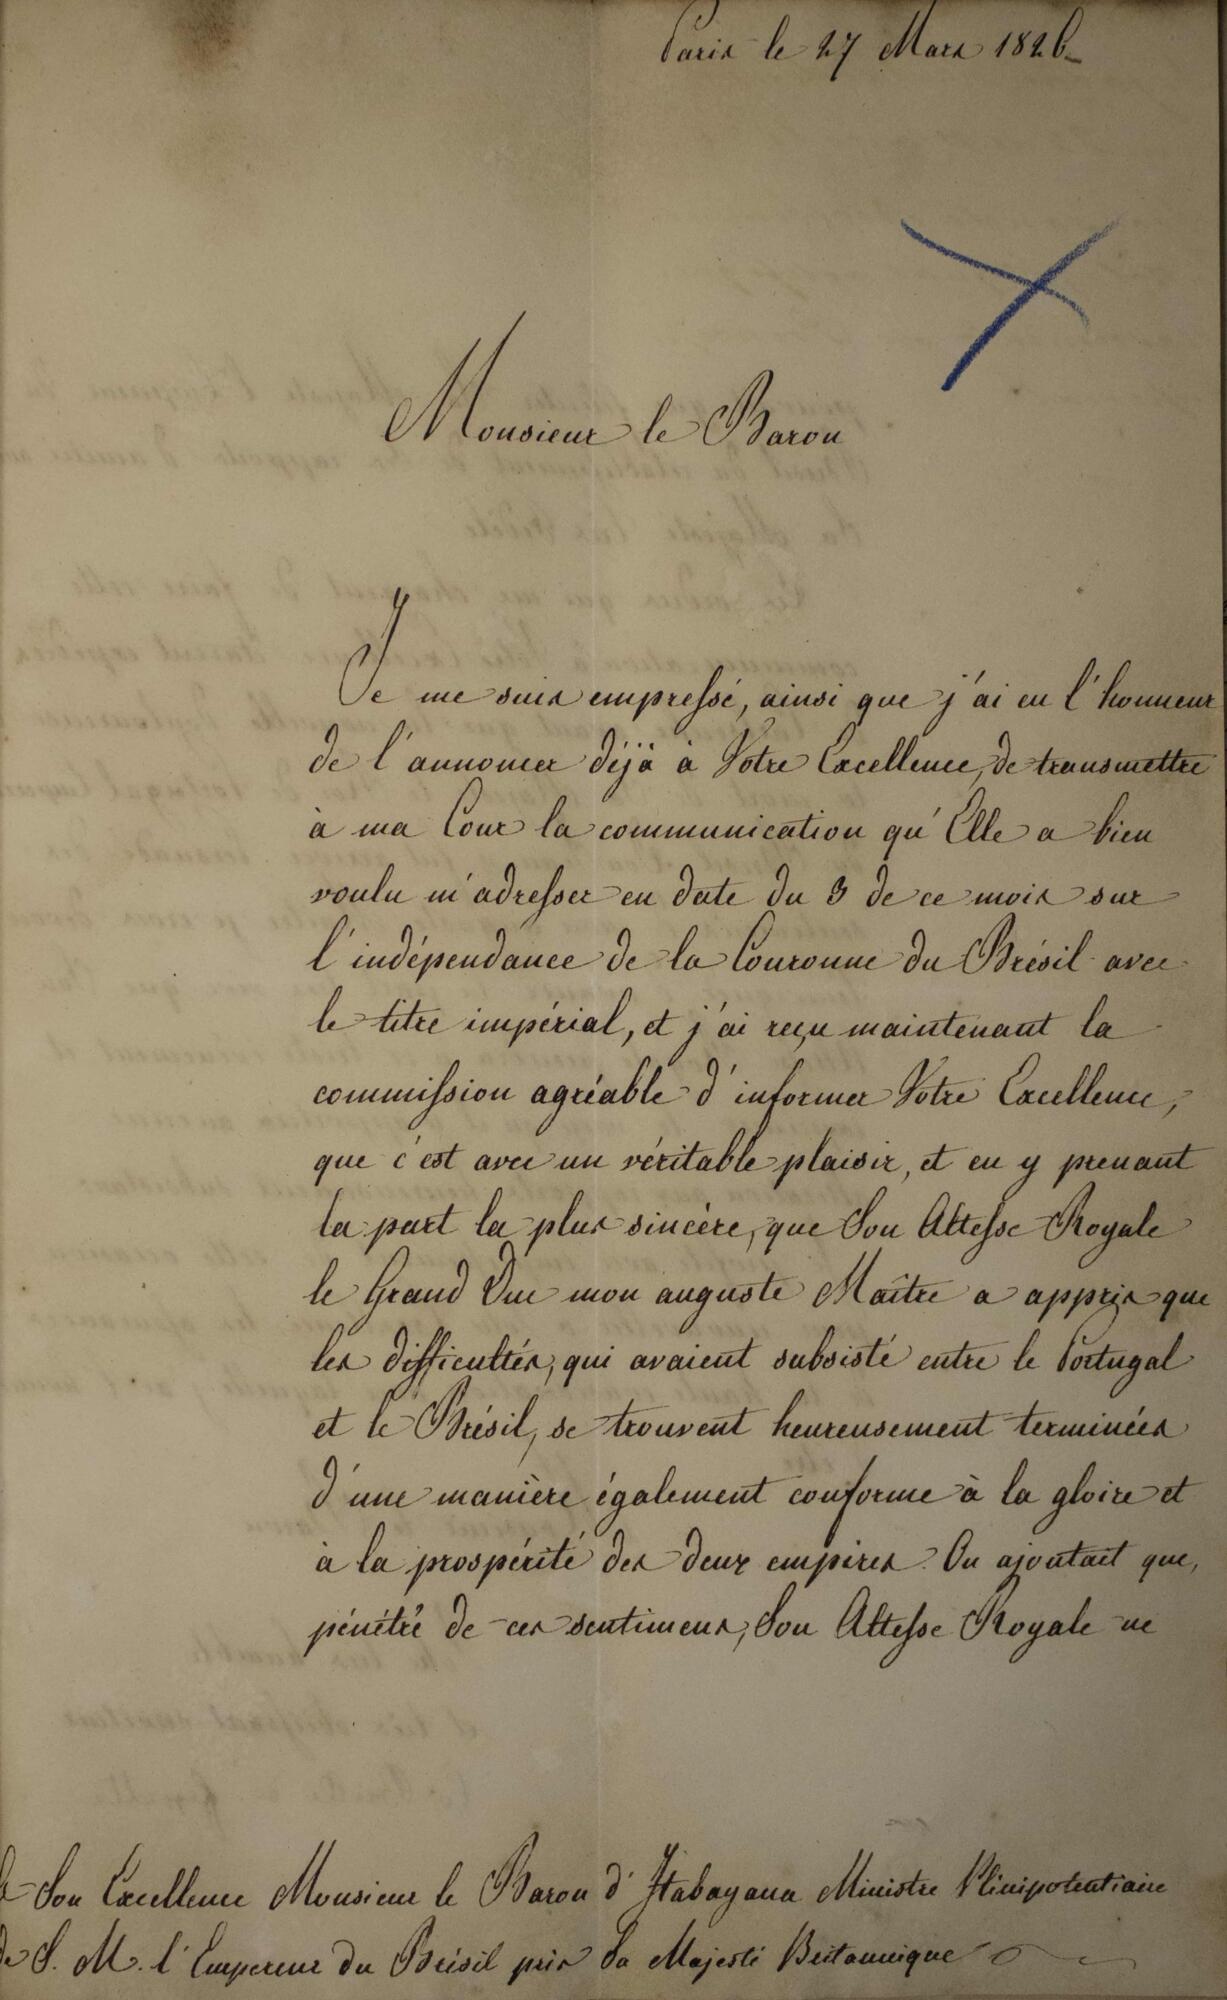 Paris le 27 Mars 1826
Monsieur le Baron
Je me suis empressé, ainsi que j'ai eu l'honneur
de l'annoncer déjà à Votre Excellence, de transmettre
à ma Cour la communication qu'Elle a bien
voulu m'adresser en date du 3 de ce mois sur
l'indépendance de la Couronne du Brésil avec
le titre impérial, et j'ai reçu maintenant la
commission agréable d'informer Votre Excellence,
que c'est avec un véritable plaisir, et en y prenant
la part la plus sincère, que Son Altesse Royale
le Grand Duc mon auguste Maître a appris que
les difficultés, qui avaient subsisté entre le Portugal
et le Brésil, se trouvent heureusement terminées
d'une manière également conforme à la gloire et
à la prospérité des deux empires. On ajoutait que,
pénétré de ces sentimens, Son Altesse Royale ne
Son Excellence Monsieur le Baron d'Itabayana Ministre Plénipotentiaire
de S. M. l'Empereur du Brésil près Sa Majesté Britannique